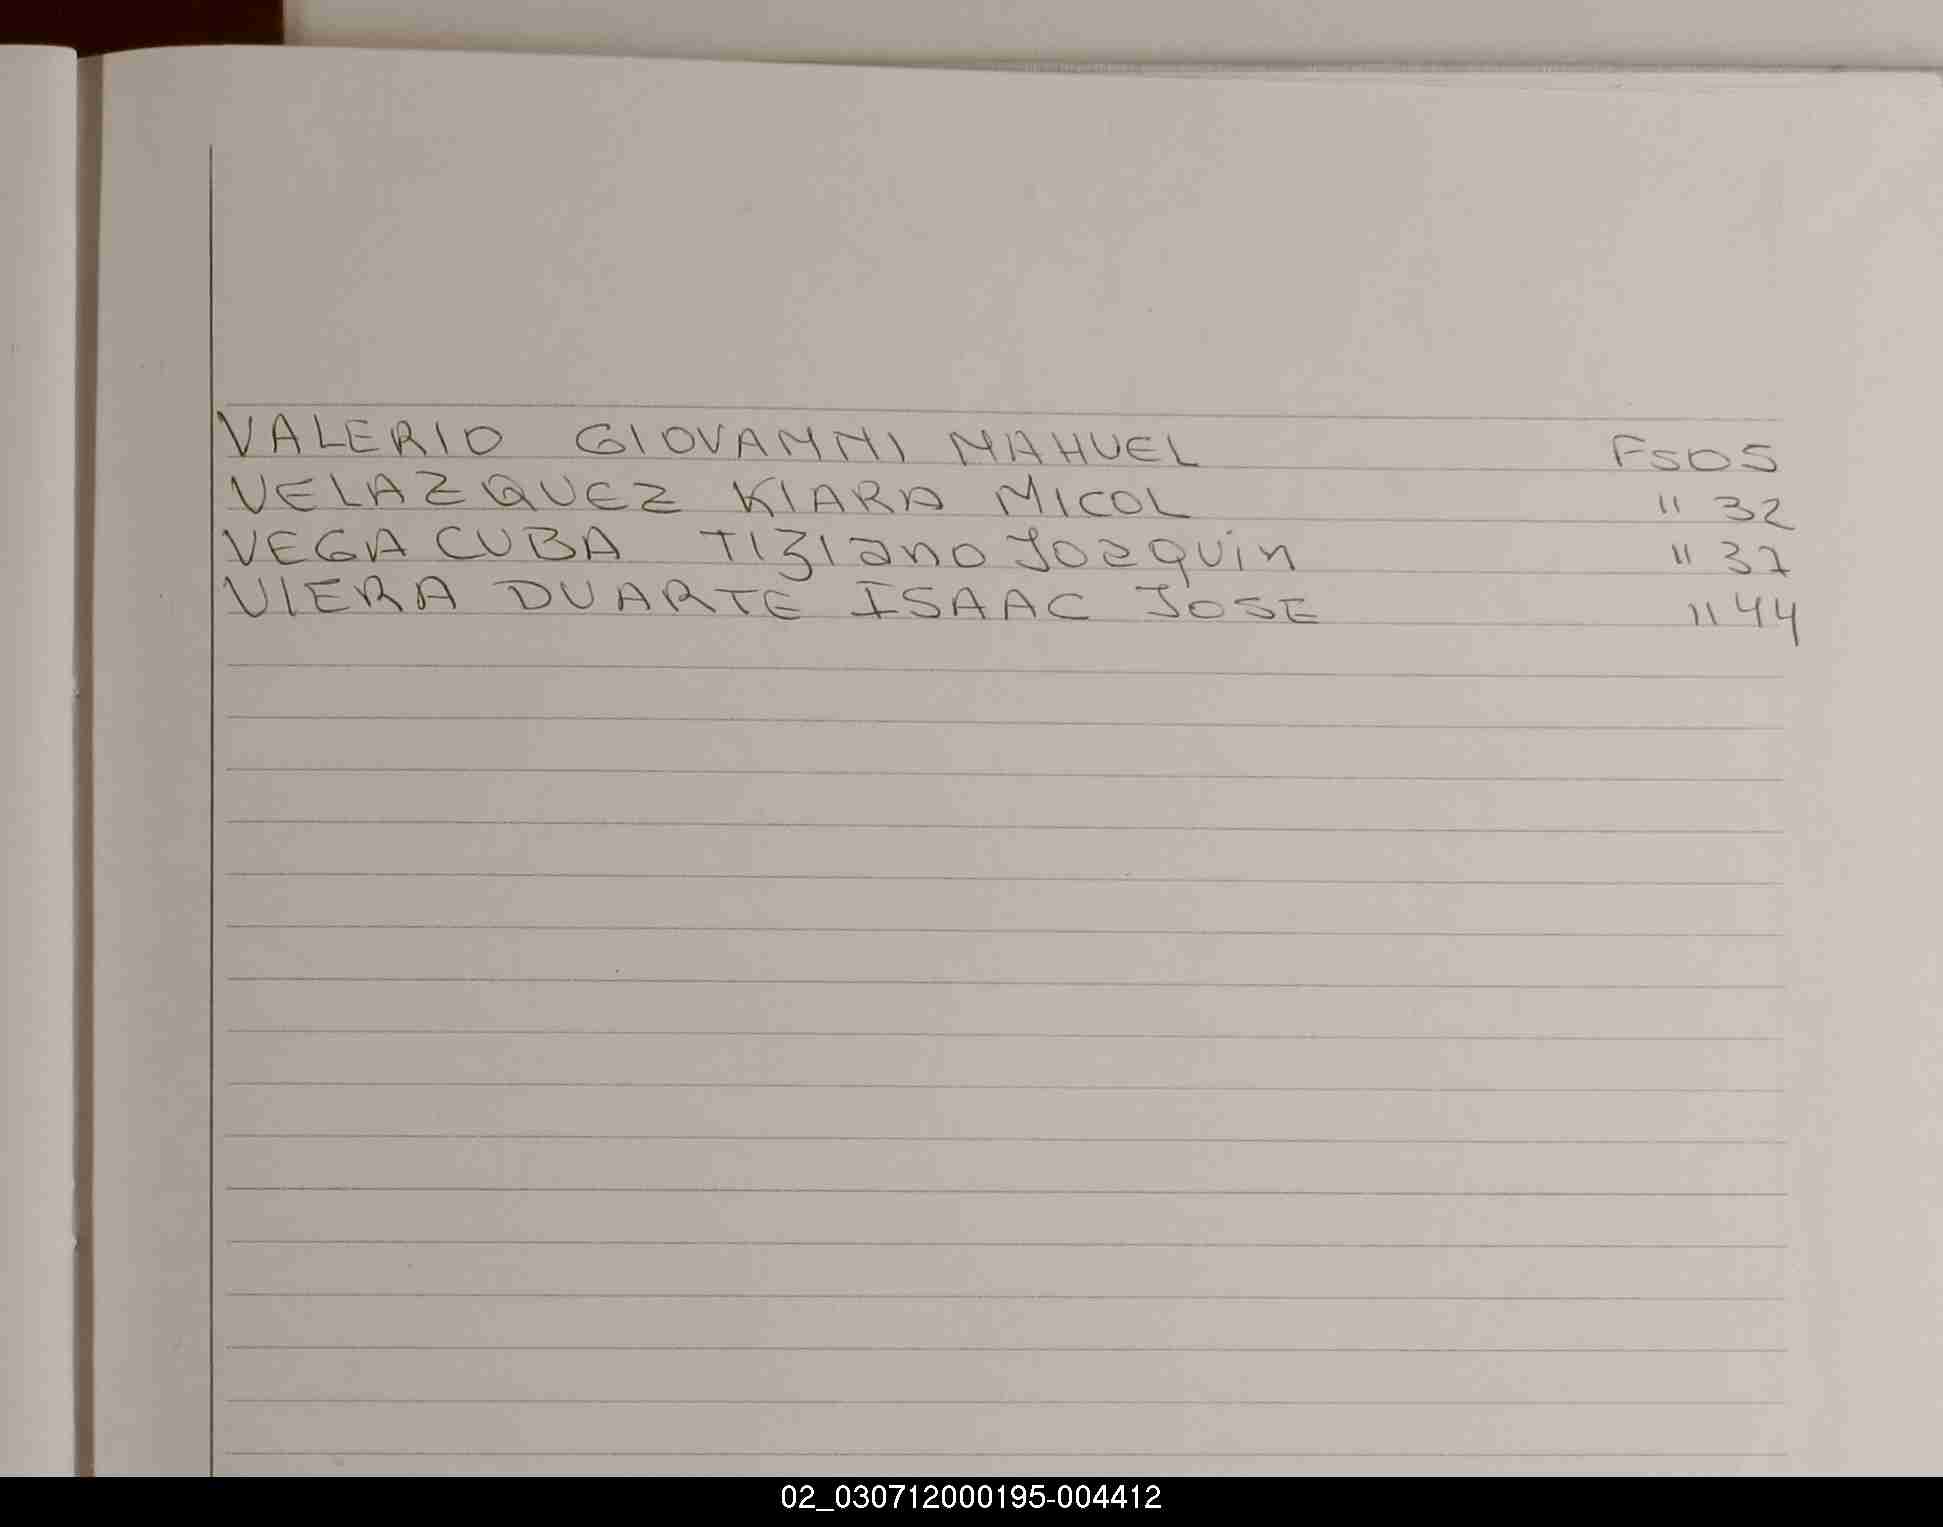 VALERIO GIOVANNI NAHUEL FS05
VELAZQUEZ KIARA MICOL " 32
VEGA CUBA TIZIANO JOAQUIN " 37
VIERA DUARTE ISAAC JOSE " 44
02_030712000195-004412